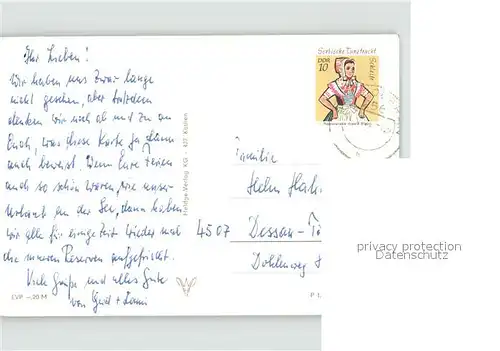 Ihr Lieben!
Wir haben uns zwar lange
nicht gesehen, aber trotzdem
denken wir noch ab und zu an
Euch, was diese Karte ja dann
auch beweist. Wenn Eure Ferien
auch so schön waren, wie unser
Urlaub an der See, dann haben
wir alle für einige Zeit wieder mal
die inneren Reserven aufgefrischt.
Viele Grüße und alles Gute
von
EVP –,20 M
Heldge-Verlag KG 427 Köthen
Sorbische Tanztracht
DDR
10
Schleife
Familie
Helm Hah
4507 Dessau-
Dohlenweg
P 1
privacy protection
Datenschutz